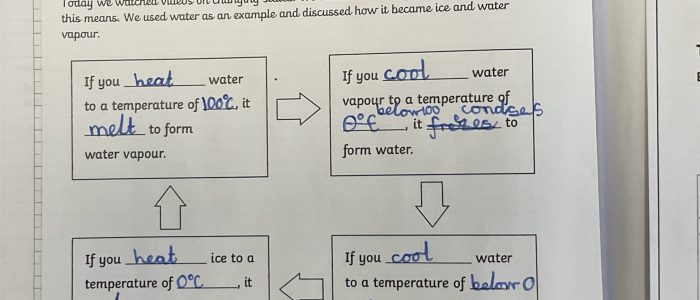 Today we watched videos on changing
this means. We used water as an example and discussed how it became ice and water
vapour.
If you heat water
to a temperature of 100°C, it
melt to form
water vapour.
If you cool water
vapour to a temperature of
below 100 condses
0°C, it frezes to
form water.
If you heat ice to a
temperature of 0°C, it
If you cool water
to a temperature of below 0